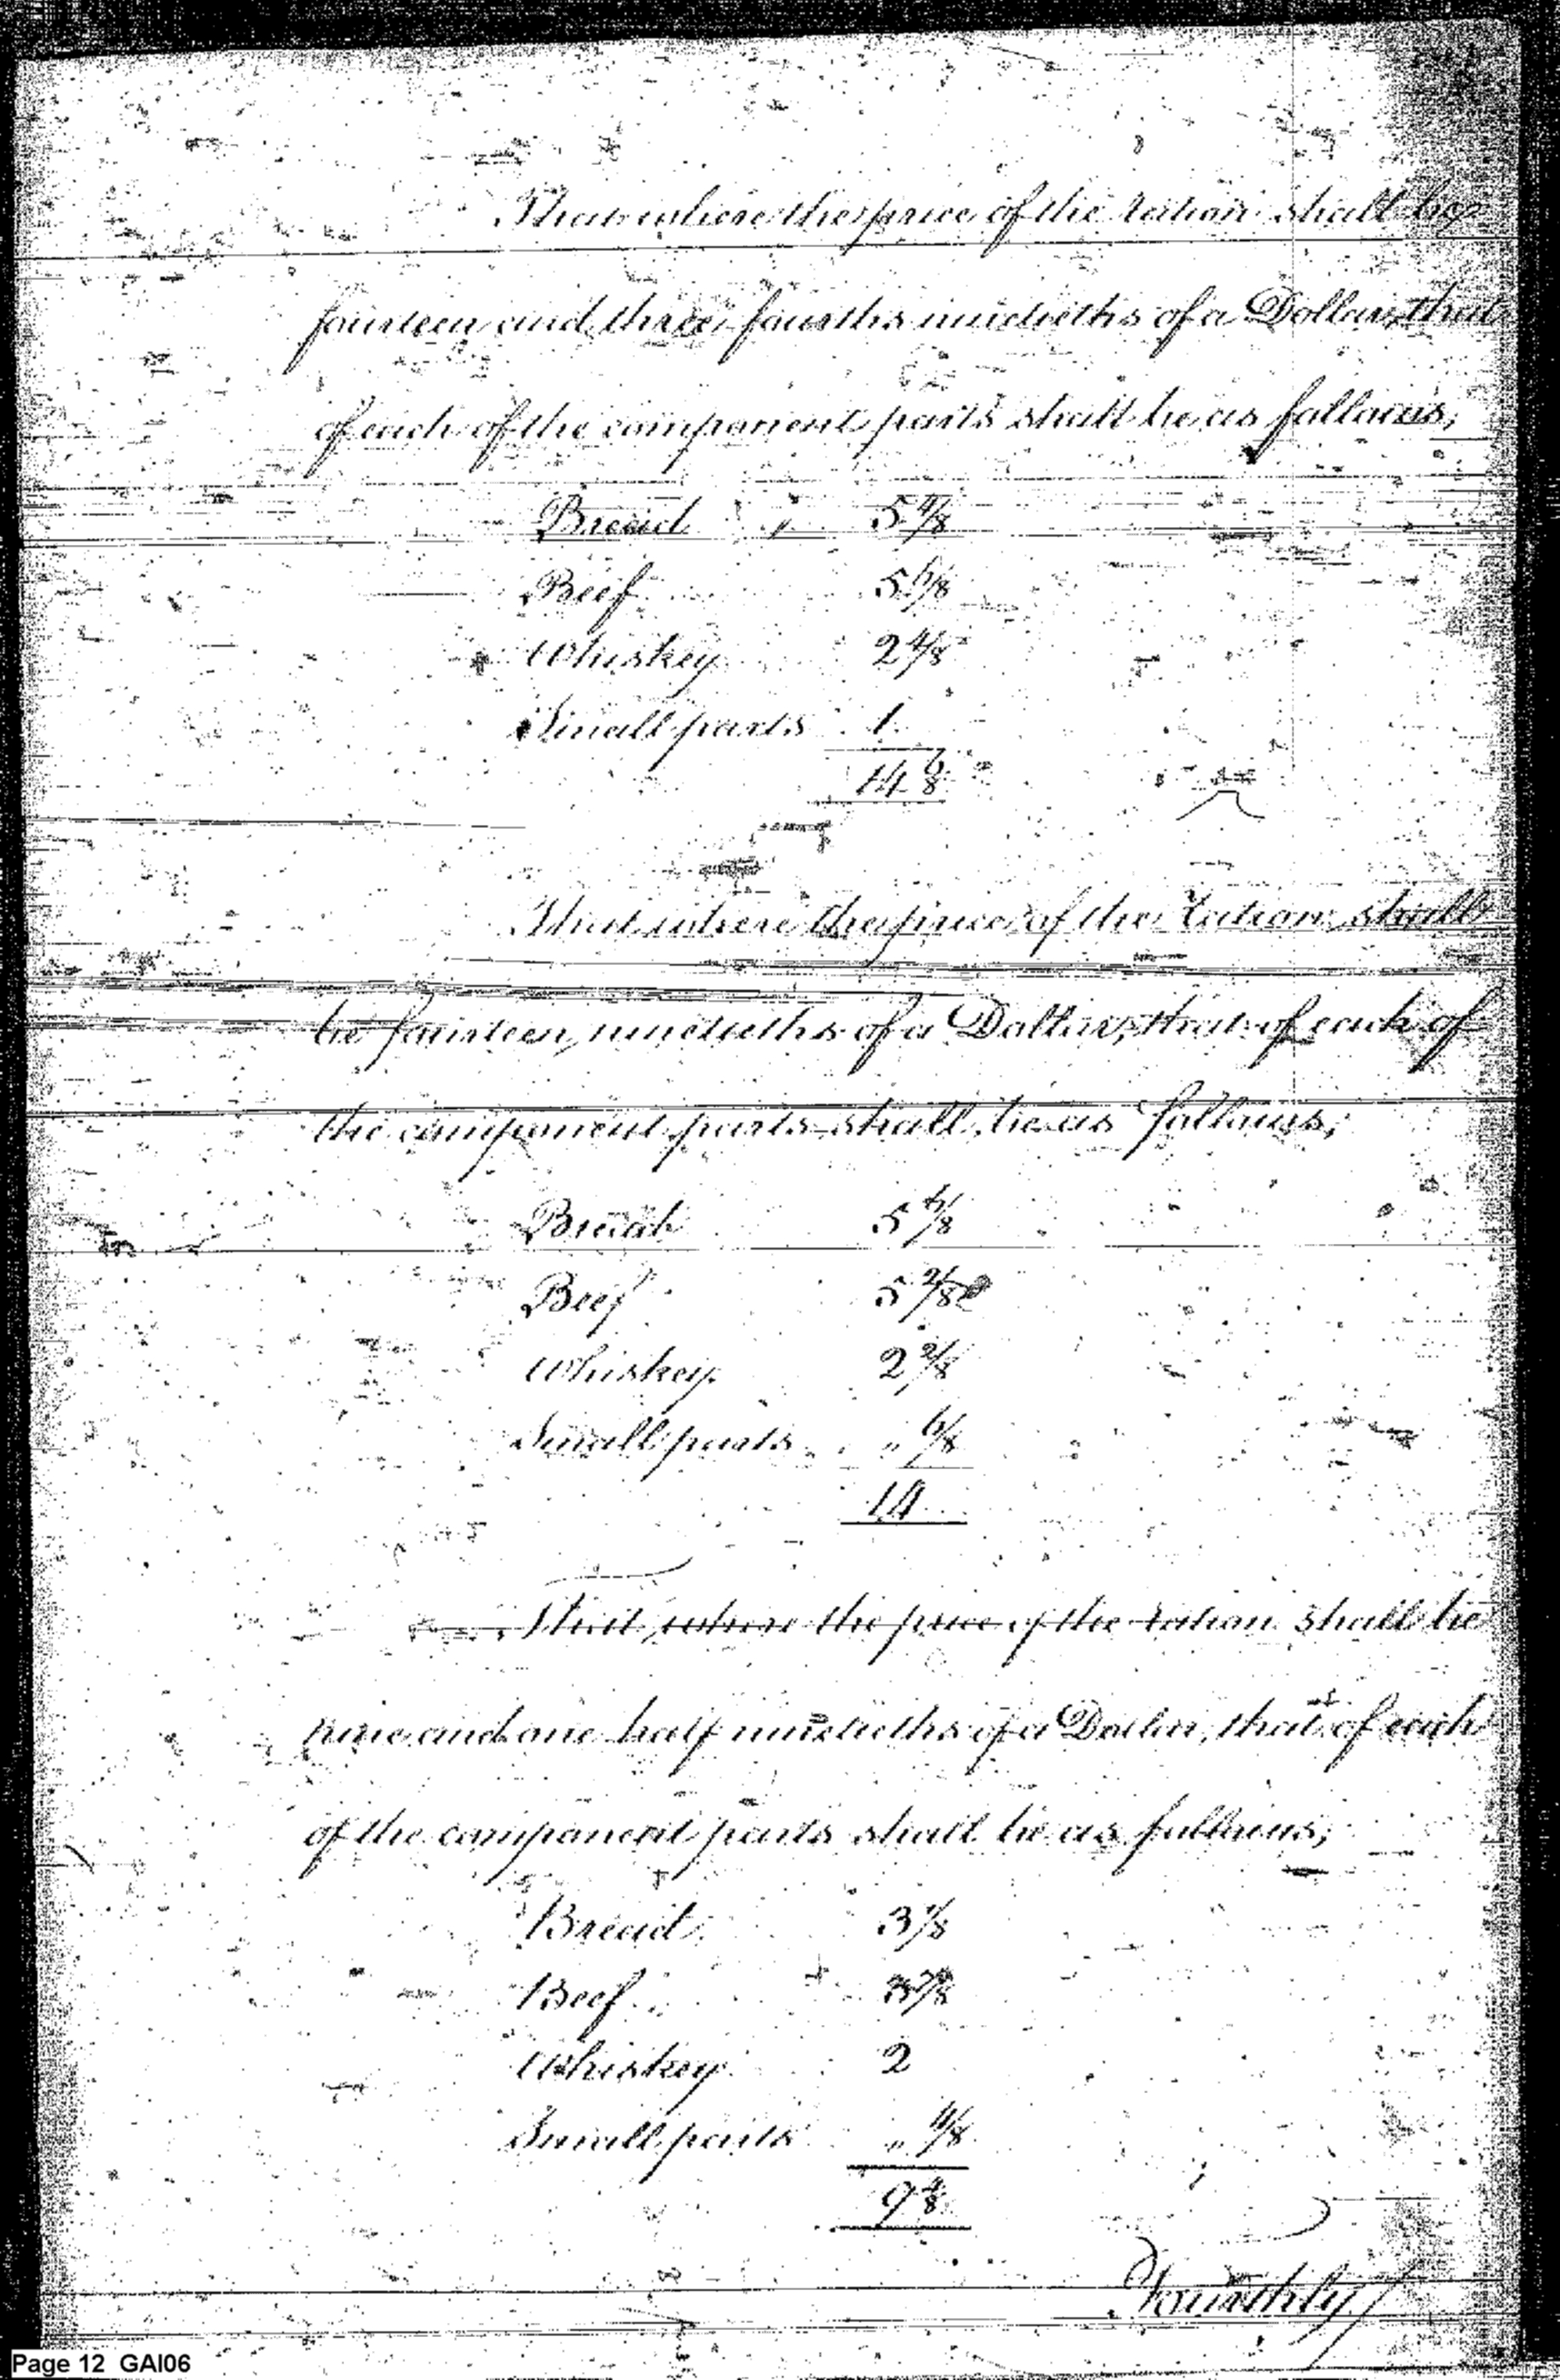 That where the price of the ration shall be
fourteen and three fourths ninetieths of a Dollar, that
of each of the component parts shall be as follows;
Bread " 5 4/8
Beef 5 6/8
Whiskey 2 4/8
Small parts 1
14 6/8
That where the price of the ration shall
be fourteen ninetieths of a Dollar, that of each of
the component parts shall be as follows;
Bread 5 6/8
Beef 5 2/8
Whiskey 2 2/8
Small parts " 6/8
14
That, where the price of the ration shall be
nine and one half ninetieths of a Dollar, that of each
of the component parts shall be as follows;
Bread 3 1/8
Beef 3 7/8
Whiskey 2
Small parts " 4/8
9 4/8
Fourthly
Page 12 GAI06